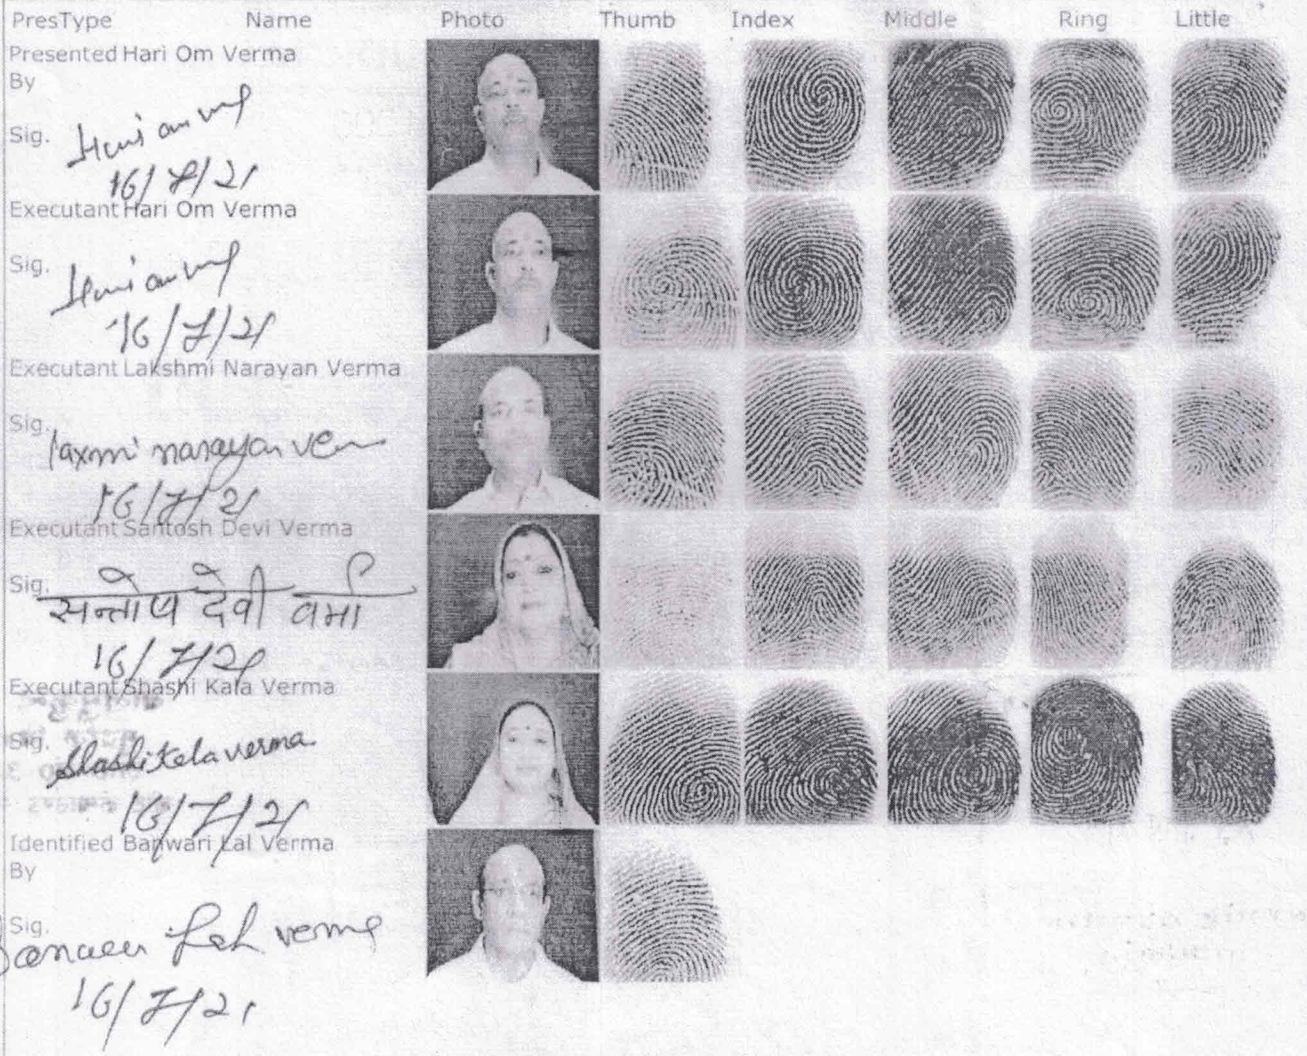 PresType Name Photo Thumb Index Middle Ring Little
Presented Hari Om Verma
By
Sig. Hari om verma
16/7/21
Executant Hari Om Verma
Sig. Hari om verma
16/7/21
Executant Lakshmi Narayan Verma
Sig. laxmi narayan
16/7/21
Executant Santosh Devi Verma
Sig. सन्तोष देवी वर्मा
16/7/21
Executant Shashi Kala Verma
Sig. Shashi kela verma
16/7/21
Identified Banwari Lal Verma
By
Sig. verma
16/7/21